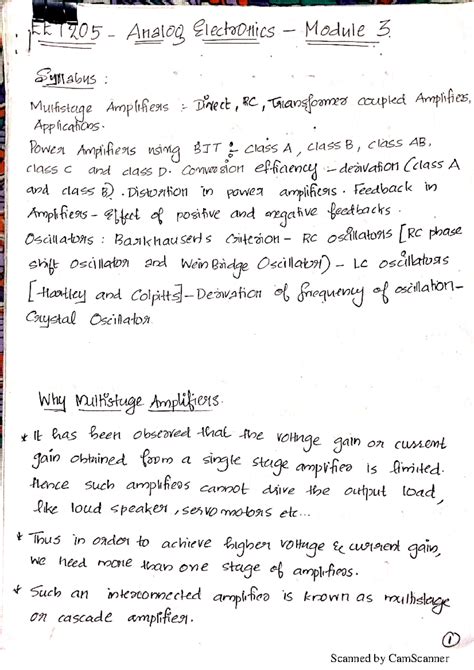 EET205 - Analog Electronics - Module 3
Syllabus :
Multistage Amplifiers : Direct, RC, Transformer coupled Amplifiers,
Applications.
Power Amplifiers using BJT : Class A, class B, class AB,
class C and class D. Conversion efficiency - derivation (class A
and class B). Distortion in power amplifiers. Feedback in
Amplifiers - Effect of positive and negative feedbacks.
Oscillators : Barkhausen's Criterion - RC oscillators [RC phase
shift Oscillator and Wein Bridge Oscillator) - LC oscillators
[Hartley and Colpitts] - Derivation of frequency of oscillation -
Crystal Oscillator
Why Multistage Amplifiers
* It has been observed that the voltage gain or current
gain obtained from a single stage amplifier is limited.
Hence such amplifiers cannot drive the output load,
like loud speaker, servomotors etc...
* Thus in order to achieve higher voltage & current gain,
we need more than one stage of amplifiers.
* Such an interconnected amplifier is known as multistage
or cascade amplifier.
1
Scanned by CamScanner